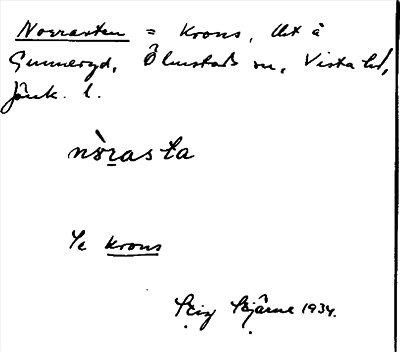 Norrasten = Krons, lht å
Gunneryd, Ölmstads sn, Vista hd,
Jönk. l.
nòrasta
Se Krons
Stig Stjärne 1934.